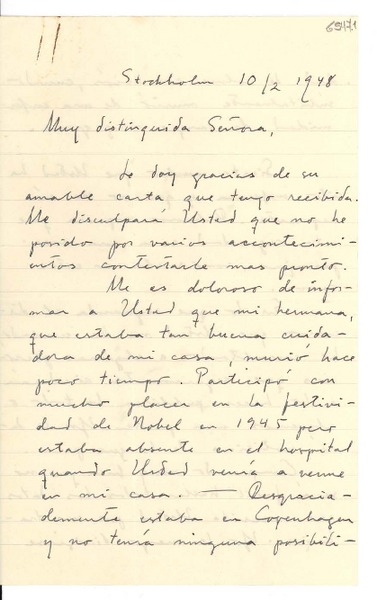 69471
Stockholm 10/2 1948
Muy distinguida Señora,
Le doy gracias de su
amable carta que tengo recibida.
Me disculpará Usted que no he
posido por varios accontecimi-
entos contestarle mas pronto.
Me es doloroso de infor-
mar a Usted que mi hermana,
que estaba tan buena cuida-
dora de mi casa, murió hace
poco tiempo. Participó con
mucho placer en la festivi-
dad de Nobel en 1945 pero
estaba absente en el hospital
quando Usted venía a verme
en mi casa. — Desgracia-
demente estaba en Copenhagen
y no tenía ninguna posibili-